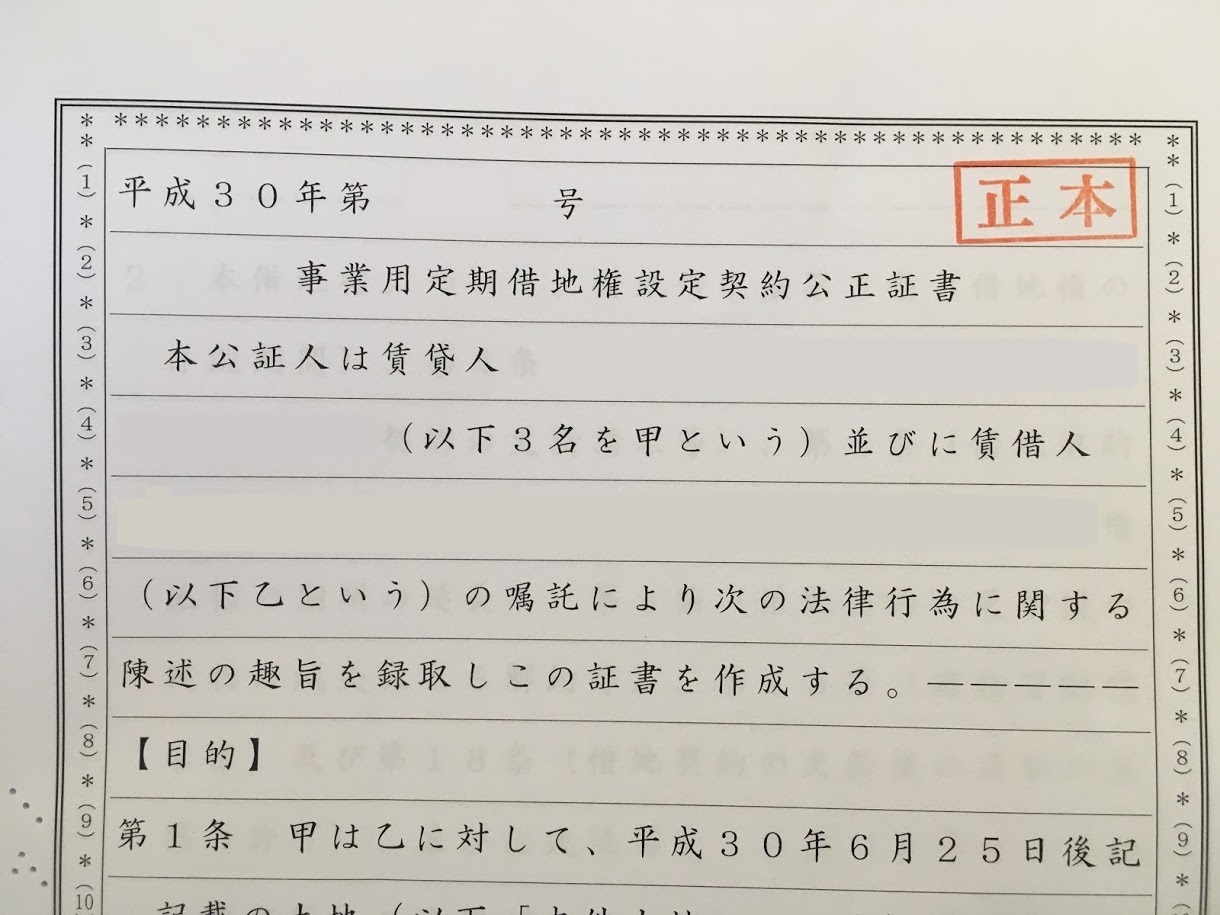 平成３０年第　　　　号
正本
事業用定期借地権設定契約公正証書
本公証人は賃貸人
（以下３名を甲という）並びに賃借人
（以下乙という）の嘱託により次の法律行為に関する
陳述の趣旨を録取しこの証書を作成する。
【目的】
第１条　甲は乙に対して、平成３０年６月２５日後記
記載の土地（以下「本件土地